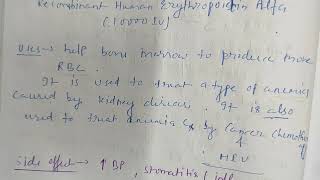 Recombinant Human Erythropoietin Alfa
(10000 IU)
Uses → help bone marrow to produce more
RBC.
It is used to treat a type of anemia
caused by kidney disease. It is also
used to treat anemia by Cancer chemotherapy
&
HIV
Side effect → ↑ BP, stomatitis (